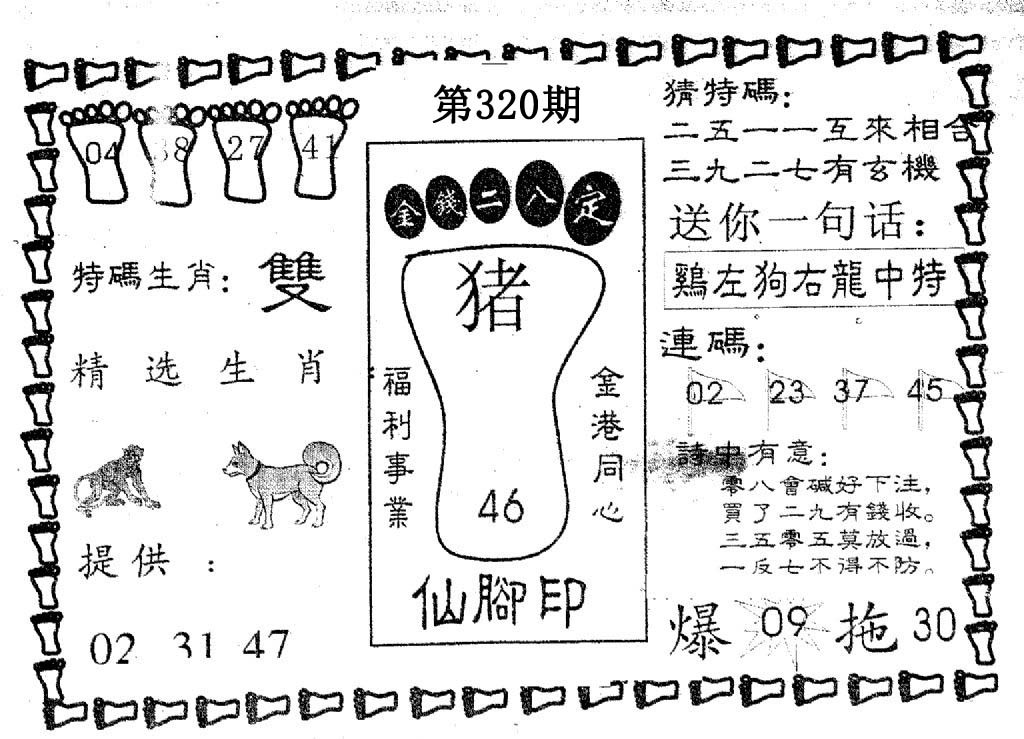 第320期
04 38 27 41
特碼生肖：雙
精选生肖
提供：
02 31 47
金錢二八定
猪
福利事業
金港同心
46
仙腳印
猜特碼：
二五一一互來相合
三九二七有玄機
送你一句话：
鷄左狗右龍中特
連碼：
02 23 37 45
詩中有意：
零八會碱好下注，
買了二九有錢收。
三五零五莫放過，
一反七不得不防。
爆 09 拖 30